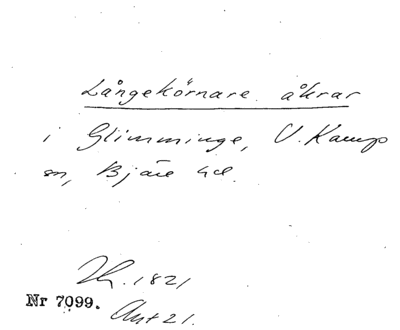 Långekörnare åkrar
i Glimminge, V. Karup
sn, Bjäre hd.
1821
Nr 7099.
Akt 21.